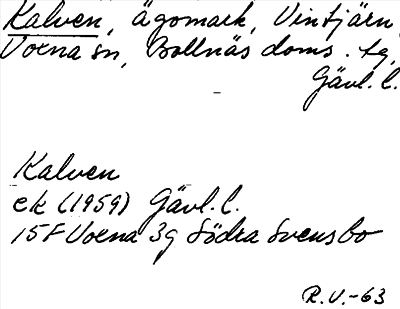 Kalven, ägomark, Vintjärn,
Voxna sn, Bollnäs doms. tg,
Gävl. l.
Kalven
ek (1959) Gävl. l.
15F Voxna 3g Södra Svensbo
R.V.-63